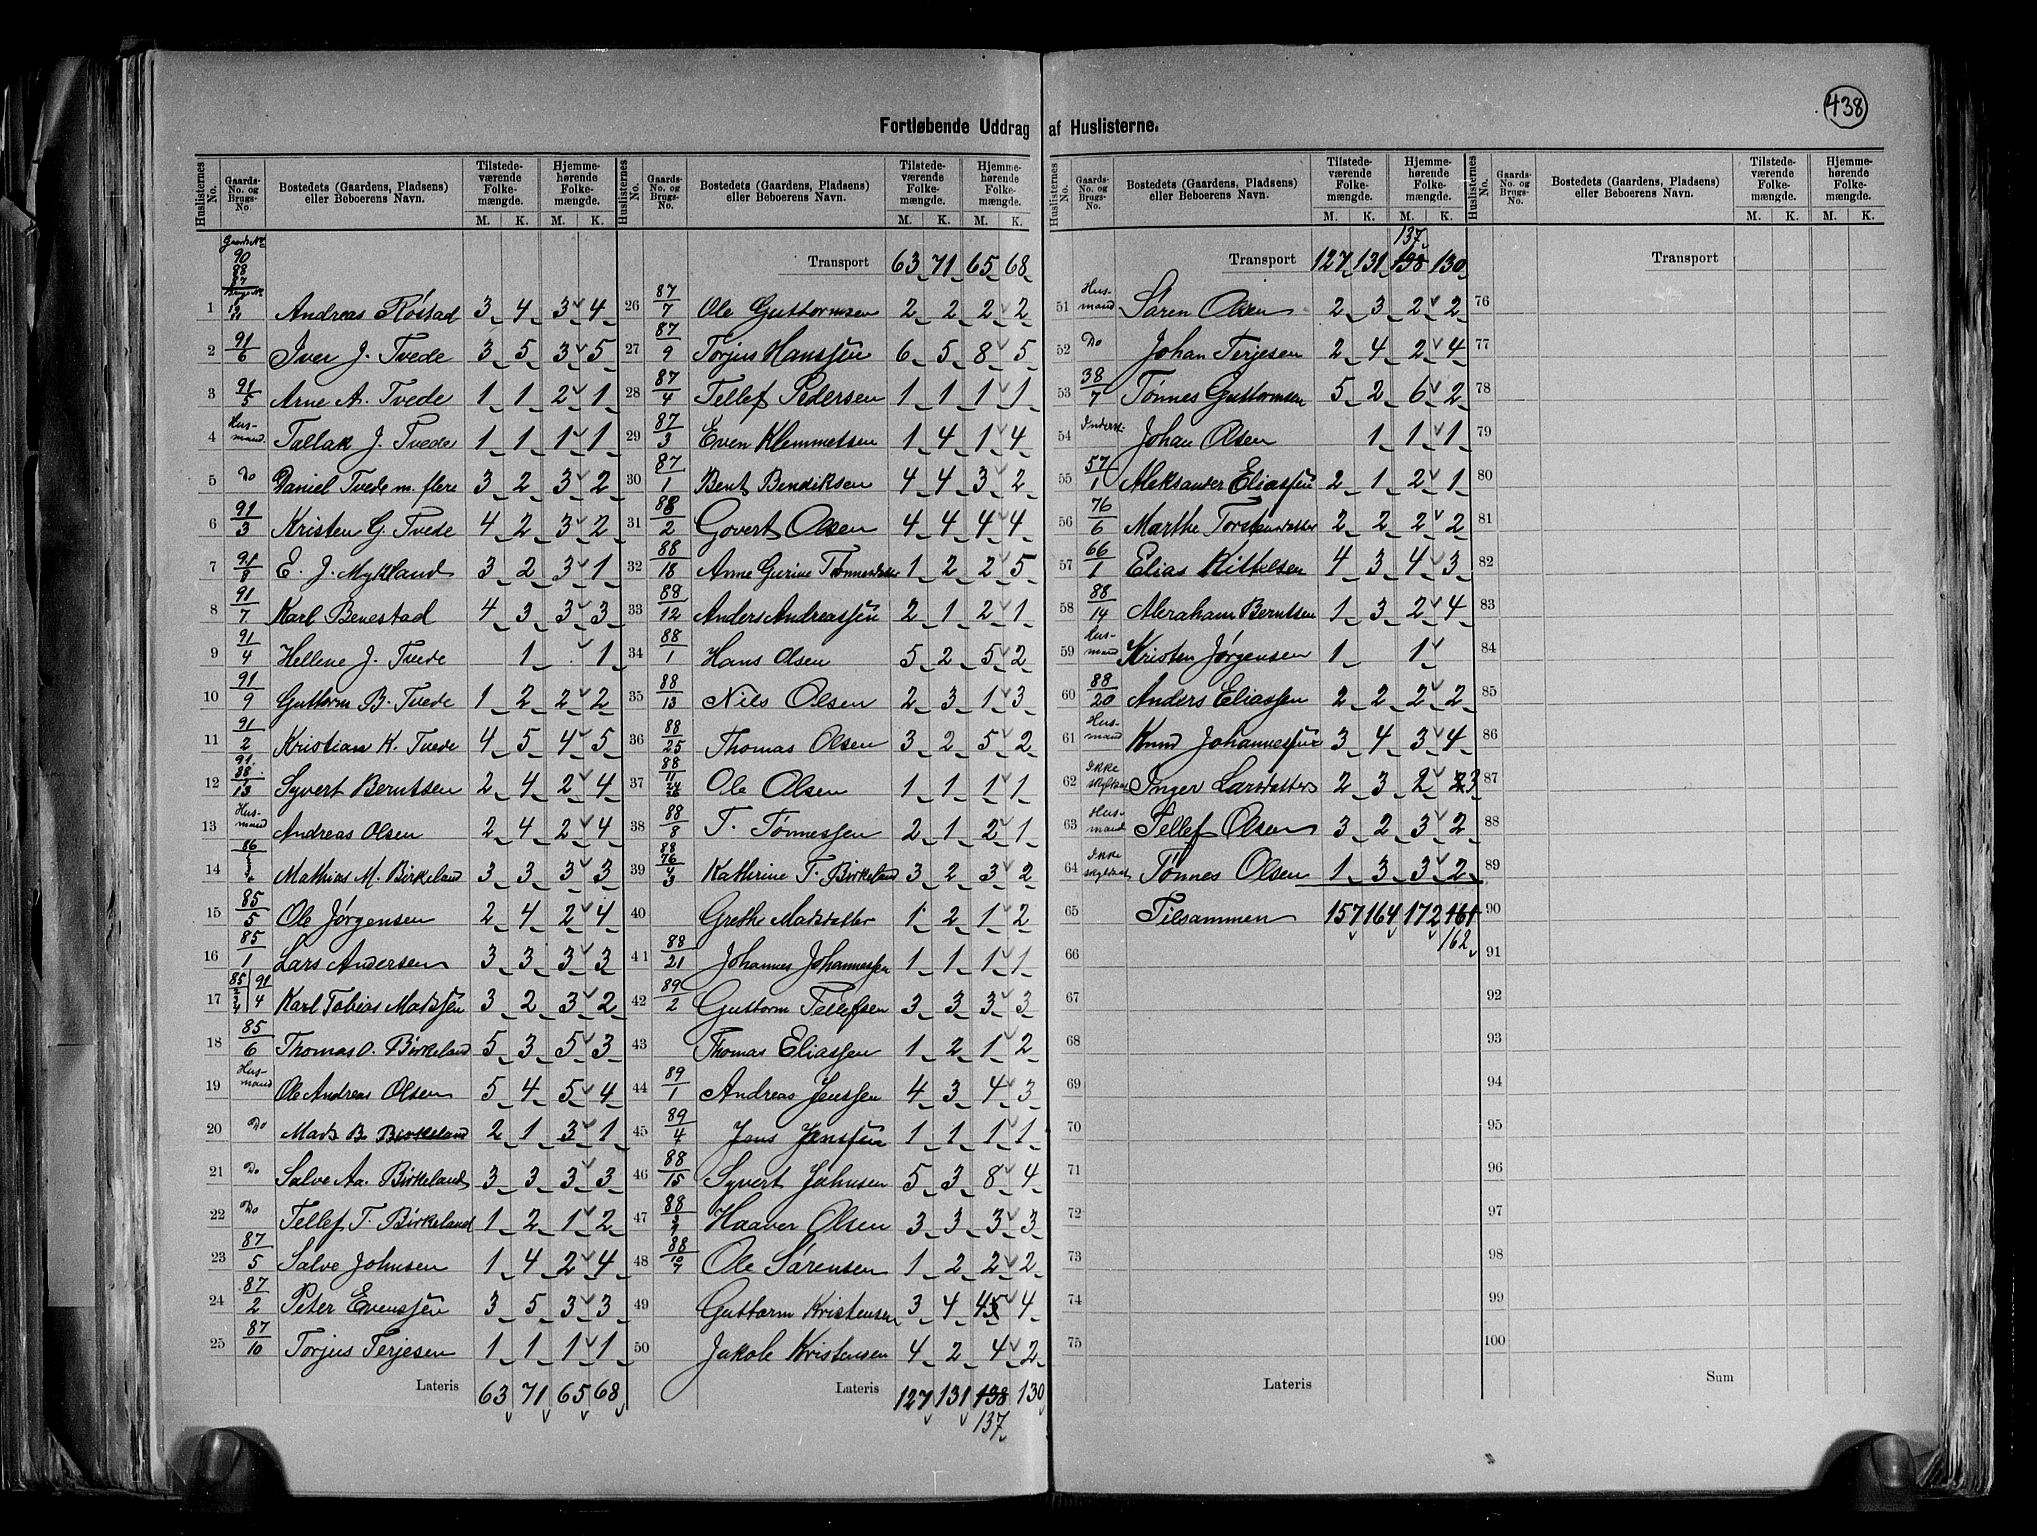 438
Fortløbende Uddrag af Huslisterne.
Huslisternes No. Gaards-No. og Brugs-No. Bostedets (Gaardens, Pladsens) eller Beboerens Navn. Tilstedeværende Folkemængde. M. K. Hjemmehørende Folkemængde. M. K.
Gaards No 90 88 87 Brugs No
1 Andreas Røstad 3 4 3 4
2 91/6 Iver J. Tvede 3 5 3 5
3 91/5 Arne A. Tvede 1 1 2 1
4 Husmand. Tallak J. Tvede 1 1 1 1
5 Do Daniel Tvede m. flere 3 2 3 2
6 91/3 Kristen G. Tvede 4 2 3 2
7 91/8 E. J. Mykland 3 2 3 1
8 91/7 Karl Benestad 4 3 3 3
9 91/4 Hellene J. Tvede 1 1
10 91/9 Guttorm B. Tvede 1 2 2 2
11 91/2 Kristian K. Tvede 4 5 4 5
12 91. 88/13 Syvert Berntsen 2 4 2 4
13 Husmand Andreas Olsen 2 4 2 4
14 86 Mathias M. Birkeland 3 3 3 3
15 85/5 Ole Jørgensen 2 4 2 4
16 85/1 Lars Andersen 3 3 3 3
17 85/2 3 4 91/4 Karl Tobias Madssen 3 2 3 2
18 85/6 Thomas O. Birkeland 5 3 5 3
19 Husmand Ole Andreas Olsen 5 4 5 4
20 Do Mads B. Birkeland 2 1 3 1
21 Do Salve Aa. Birkeland 3 3 3 3
22 Do Tellef T. Birkeland 1 2 1 2
23 87/5 Salve Johnsen 1 4 2 4
24 87/2 Peter Evenssen 3 5 3 3
25 87/10 Torjus Terjesen 1 1 1 1
Lateris 63 71 65 68
Huslisternes No. Gaards-No. og Brugs-No. Bostedets (Gaardens, Pladsens) eller Beboerens Navn. Tilstedeværende Folkemængde. M. K. Hjemmehørende Folkemængde. M. K.
Transport 63 71 65 68
26 87/7 Ole Guttormsen 2 2 2 2
27 87/9 Torjus Hanssen 6 5 8 5
28 87/4 Tellef Pedersen 1 1 1 1
29 87/3 Even Klemmetsen 1 4 1 4
30 87/1 Bent Bendiksen 4 4 3 2
31 88/2 Govert Olsen 4 4 4 4
32 88/18 Anne Gurine Tønnesdatter 1 2 2 5
33 88/12 Anders Andreassen 2 1 2 1
34 88/1 Hans Olsen 5 2 5 2
35 88/13 Nils Olsen 2 3 1 3
36 88/25 Thomas Olsen 3 2 5 2
37 88/11 Ole Olsen 1 1 1 1
38 88/8 T. Tønnessen 2 1 2 1
39 88 76 Kathrine T. Birkeland 3 2 3 2
40 Grethe Madsdatter 1 2 1 2
41 88/21 Johannes Johannessen 1 1 1 1
42 89/2 Guttorm Tellefsen 3 3 3 3
43 Thomas Eliassen 1 2 1 2
44 89/1 Andreas Jenssen 4 3 4 3
45 89/4 Jens Jenssen 1 1 1 1
46 88/15 Syvert Johnsen 5 3 8 4
47 88/3 Haaver Olsen 3 3 3 3
48 88/10 9 Ole Sørensen 1 2 2 2
49 Guttorm Kristensen 3 4 4 4
50 Jakob Kristensen 4 2 4 2
Lateris 127 131 138 130
137
Huslisternes No. Gaards-No. og Brugs-No. Bostedets (Gaardens, Pladsens) eller Beboerens Navn. Tilstedeværende Folkemængde. M. K. Hjemmehørende Folkemængde. M. K.
137
Transport 127 131 138 130
51 Husmand Søren Olsen 2 3 2 2
52 Do Johan Terjesen 2 4 2 4
53 38/7 Tønnes Guttormsen 5 2 6 2
54 Inderst. Johan Olsen 1 1 1
55 57/1 Aleksander Eliassen 2 1 2 1
56 76/6 Marthe Torstensdatter 2 2 2 2
57 66/1 Elias Kittelsen 4 3 4 3
58 88/14 Abraham Berntsen 1 3 2 4
59 Husmand Kristen Jørgensen 1 1
60 88/20 Anders Eliassen 2 2 2 2
61 Husmand Knud Johannessen 3 4 3 4
62 Ikke skyldsat Inger Larsdatter 2 3 2 2 3
63 Husmand Tellef Olsen 3 2 3 2
64 Ikke skyldsat Tønnes Olsen 1 3 3 2
65 Tilsammen 157 164 172 161
162
66
67
68
69
70
71
72
73
74
75
Lateris
Huslisternes No. Gaards-No. og Brugs-No. Bostedets (Gaardens, Pladsens) eller Beboerens Navn. Tilstedeværende Folkemængde. M. K. Hjemmehørende Folkemængde. M. K.
Transport
76
77
78
79
80
81
82
83
84
85
86
87
88
89
90
91
92
93
94
95
96
97
98
99
100
Sum